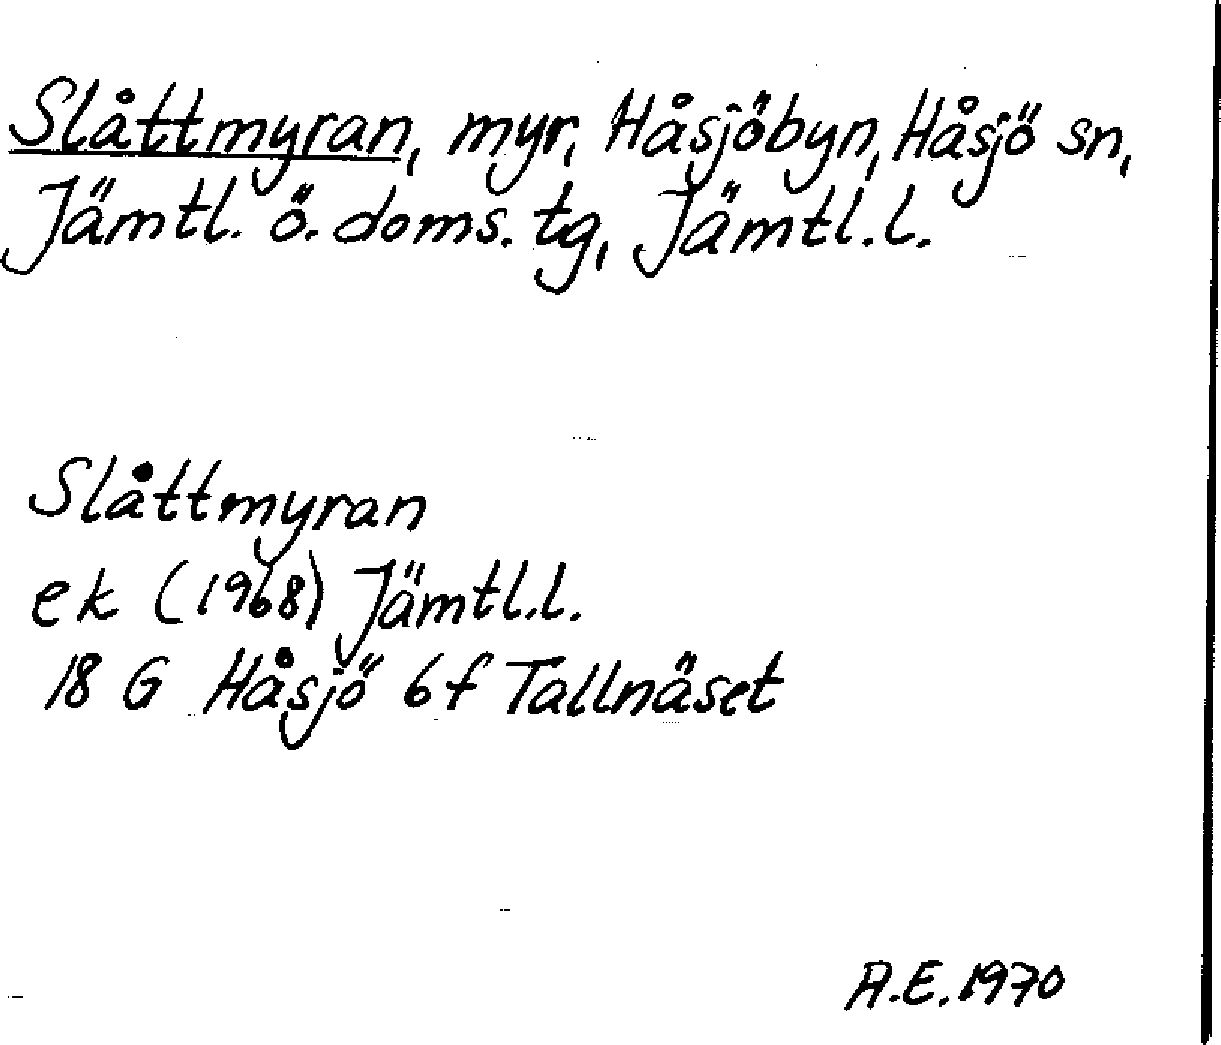 Slåttmyran, myr, Håsjöbyn, Håsjö sn,
Jämtl. ö. doms. tg, Jämtl. l.
Slåttmyran
ek (1968) Jämtl. l.
18 G Håsjö 6 f Tallnäset
A.E. 1970